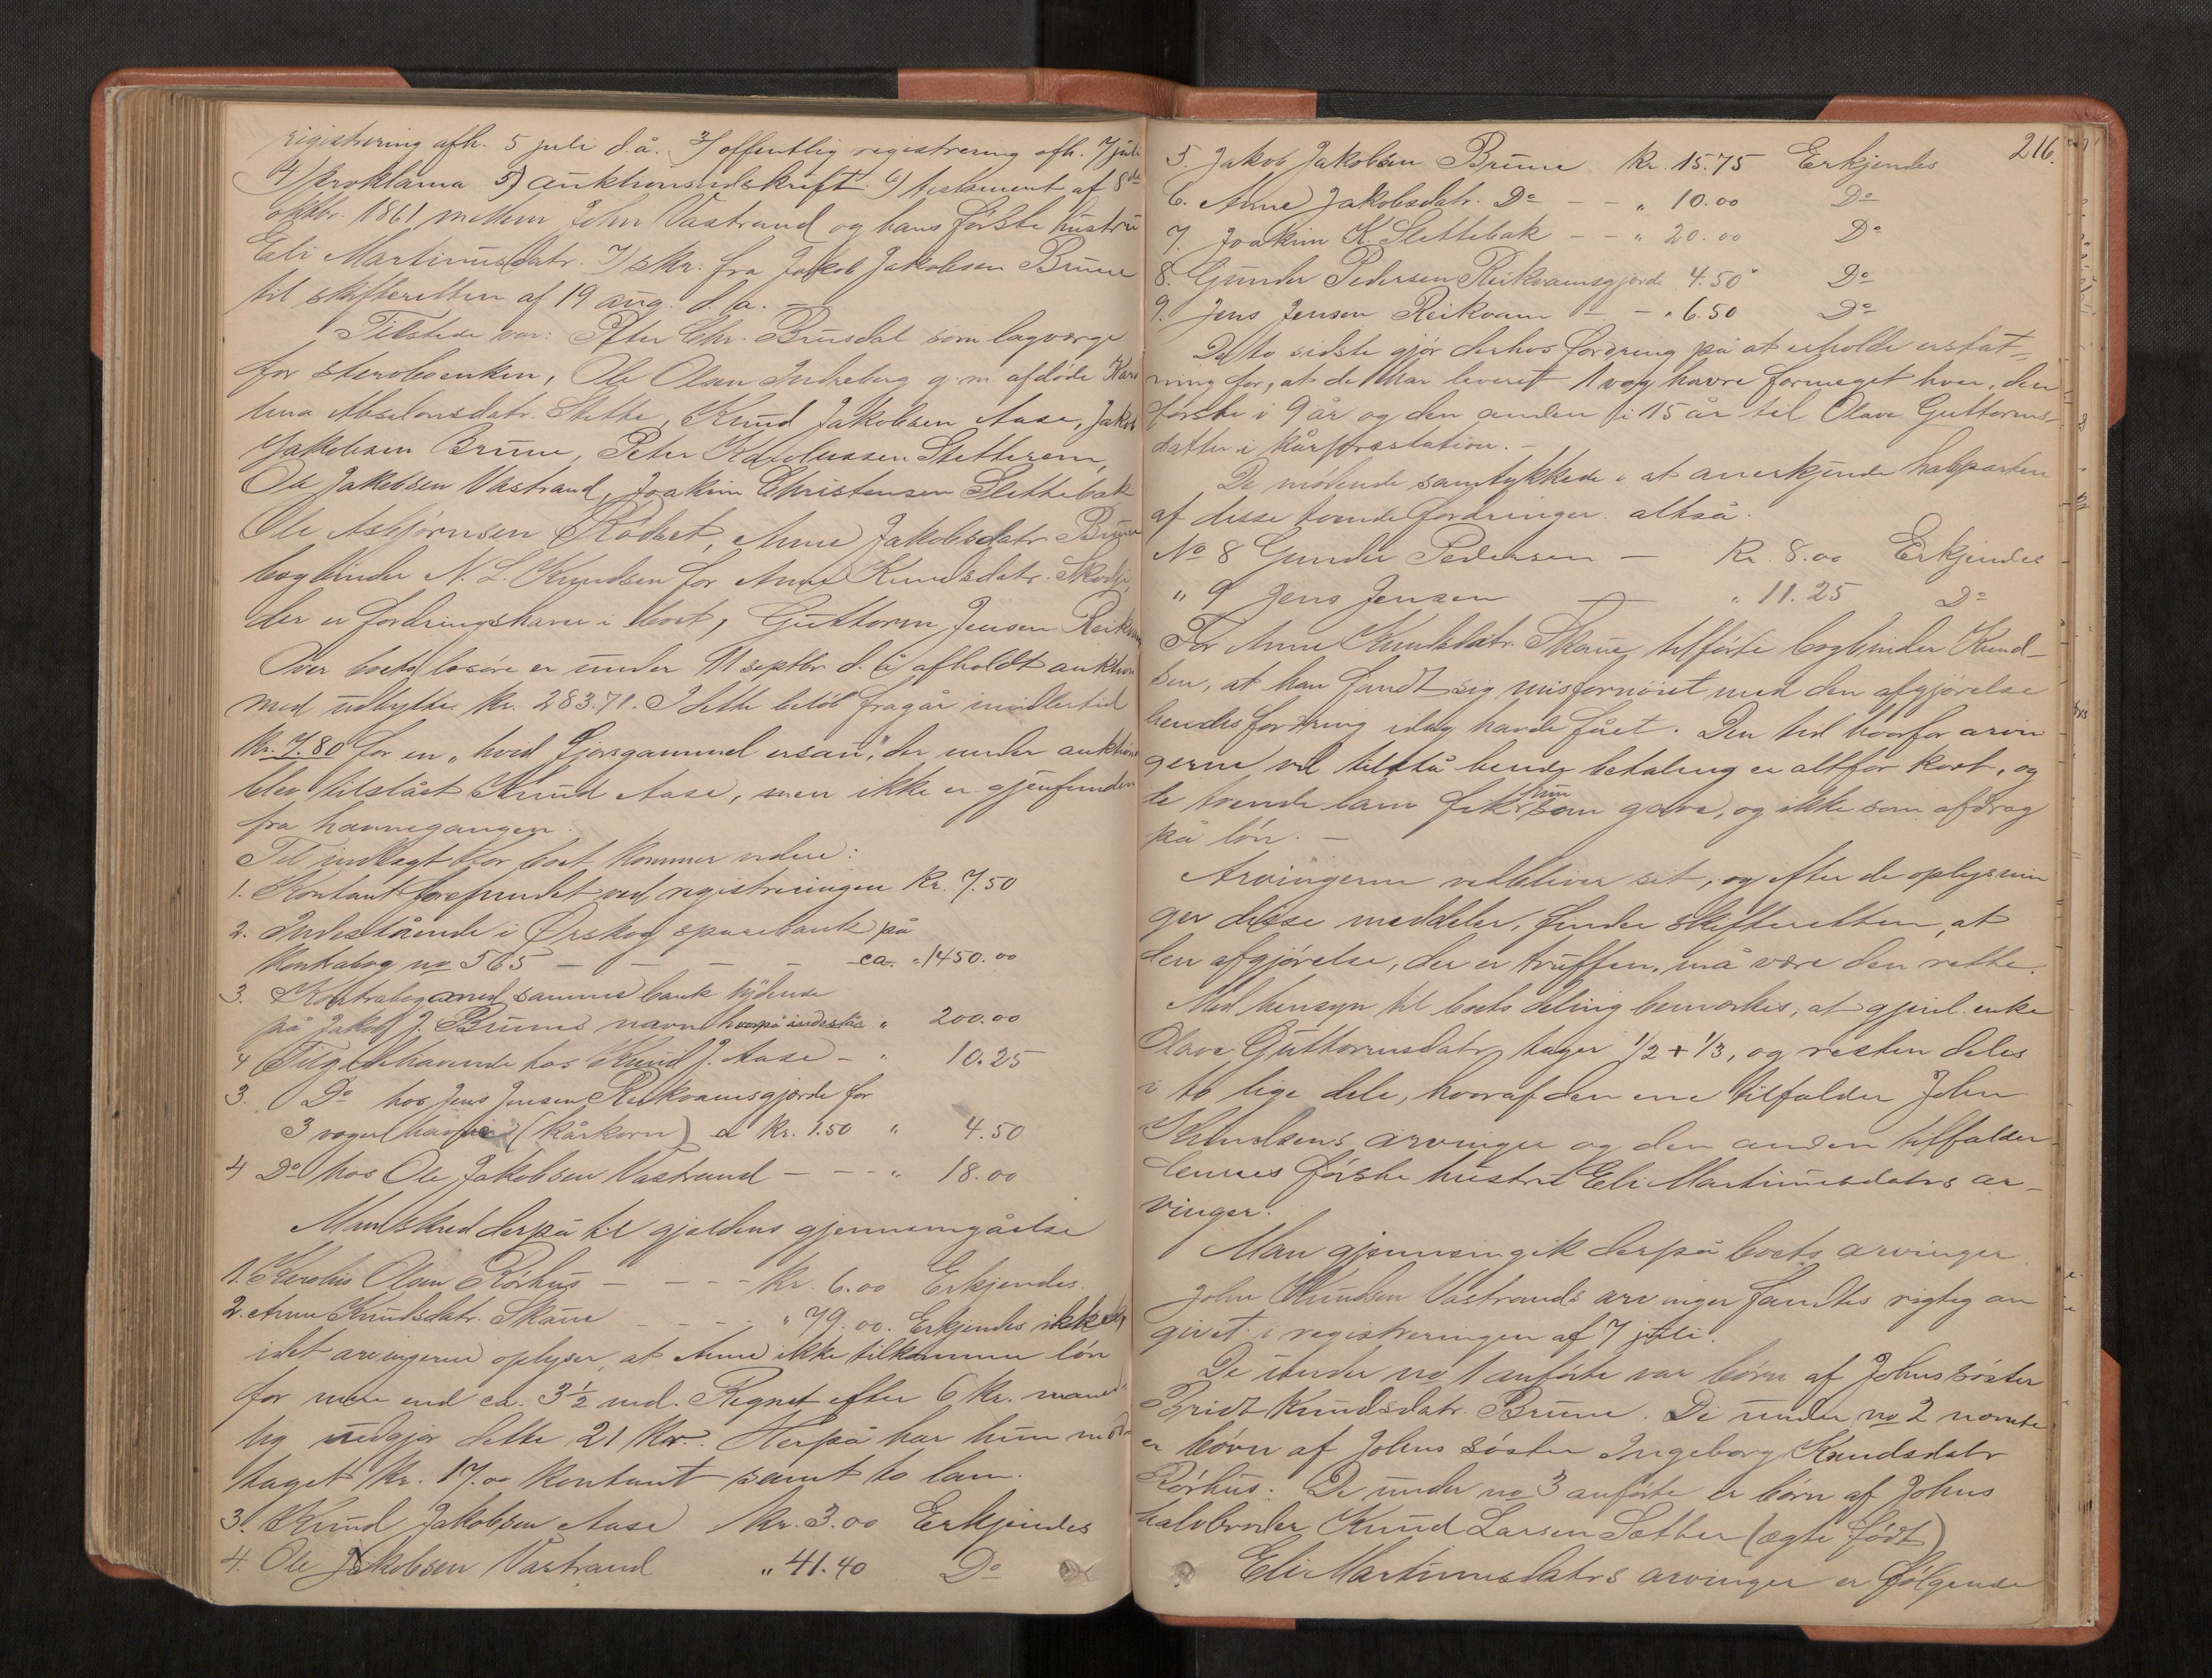 registrering afh. 5 juli d.å. 3) offentlig registrering afh. 7 juli
4) proklama 5) auktionsudskrift. 6) testament af 8de
oktbr. 1861 mellem John Vastrand og hans første hustru
Eli Martinusdatr. 7) skr. fra Jakob Jakobsen Brune
til skifteretten af 19 aug. d.a. —
Tilstede var: Peter Chr. Brusdal som lagværge
for sterboenken, Ole Olsen Indreberg g. m. afdøde Kare
lina Absalonsdatr. Slette, Knud Jakobsen Aase, Jakob
Jakobsen Brune, Peter Karolussen Sletterem,
Ole Jakobsen Vastrand, Joakim Christensen Slettebak
Ole Asbjørnsen Rødset, Anne Jakobsdatr. Brune
bogbinder N. L. Knudsen for Anne Knudsdatr. Skodje,
der er fordringshaver i boet, Guttorm Jensen Reikvam
Over boets løsøre er under 11 septbr d. å afholdt auktion
med udbytte kr. 283.71. I dette beløb fragår imidlertid
kr. 7.80 for en „hvid fjorsgammel ersau", der under auktion
blev tilslået Knud Aase, men ikke er gjenfunden
fra havnegangen.
Til indtægt for boet kommer videre:
1. Kontant forefundet ved registreringen Kr. 7.50
2. Indestående i Ørskog sparebank på
kontrabog no 565 — — — — ca. „ 1450.00
3. Kontrabog med samme bank lydende
på Jakob J. Brunes navn hvorpå indestår „ 200.00
4 Tilgodehavende hos Knud J. Aase — „ 10.25
3. Do hos Jens Jensen Reikvamsgjærde for
3 voger havre (kårkorn) a kr. 1.50 „ 4.50
4 Do hos Ole Jakobsen Vastrand — — — „ 18.00
Man skred derpå til gjældens gjennemgåelse
1. Karolus Olsen Rørhus — — — — kr. 6.00 Erkjendes
2. Anne Knudsdatr. Skaue — — — — „ 79.00. Erkjendes ikke
idet arvingerne oplyser, at Anne ikke tilkommer løn
for mere end ca. 3½ md. Regnet efter 6 kr. måned
lig udgjør dette 21 kr. Herpå har hun mod
taget kr. 17.00 kontant samt to lam.
3. Knud Jakobsen Aase kr. 3.00 Erkjendes
4. Ole Jakobsen Vastrand „ 41.40 Do
216.
5. Jakob Jakobsen Brune kr. 15.75 Erkjendes
6. Anne Jakobsdatr. Do — — „ 10.00 Do
7. Joakim K. Slettebak — — „ 20.00 Do
8. Gunder Pedersen Reikvamsgjærde 4.50 Do
9. Jens Jensen Reikvam — — „ 6.50 Do
De to sidste gjør derhos fordring på at erholde erstat-
ning for, at de har leveret 1 vog havre formeget hver, den
første i 9 år og den anden i 15 år til Olave Guttorms-
datter i kårpræstation. —
De mødende samtykkede i at anerkjende halvparten
af disse tvende fordringer. altså.
No 8 Gunder Pedersen — Kr. 8.00 Erkjendes
„ 9 Jens Jensen — „ 11.25 Do
For Anne Knudsdatr. Skaue tilførte bogbinder Knud-
sen, at han fandt sig misfornøiet med den afgjørelse
hendes fordring idag havde fået. Den tid hvorfor arvin
gerne vil tilstå hende betaling er altfor kort, og
de tvende lam fik hun som gave, og ikke som afdrag
på løn. —
Arvingerne vedbliver sit, og efter de oplysnin
ger disse meddeler, finder skifteretten, at
den afgjørelse, der er truffen, må være den rette.
Med hensyn til boets deling bemærkes, at gjenl. enke
Olave Guttormsdatr. tager 1/2 + 1/3, og resten deles
i to lige dele, hvoraf den ene tilfalder John
Knudsens arvinger og den anden tilfalder
dennes første hustru Eli Martinusdatrs ar-
vinger.
Man gjennemgik derpå boets arvinger
John Knudsen Vastrands arvinger fandtes rigtig an
givet i registreringen af 7 juli.
De under no 1 anførte var børn af Johns søster
Bridt Knudsdatr. Brune. De under no 2 nævnte
er børn af Johns søster Ingeborg Knudsdatr
Rørhus. De under no 3 anførte er børn af Johns
halvbroder Knud Larsen Sæther (ægte født)
Eli Martinusdatrs arvinger er følgende